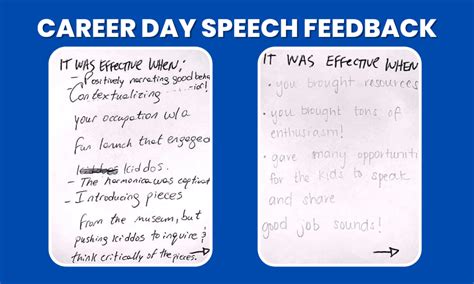 CAREER DAY SPEECH FEEDBACK
IT WAS EFFECTIVE WHEN:
- Positively narrating good behavior!
- Contextualizing
your occupation w/a
fun launch that engaged
kiddos
- The harmonica was captivat
- Introducing pieces
from the museum, but
pushing kiddos to inquire &
think critically of the pieces.
IT WAS EFFECTIVE WHEN
• you brought resources
• you brought tons of
enthusiasm!
• gave many opportuni
for the kids to speak
and share
good job sounds!